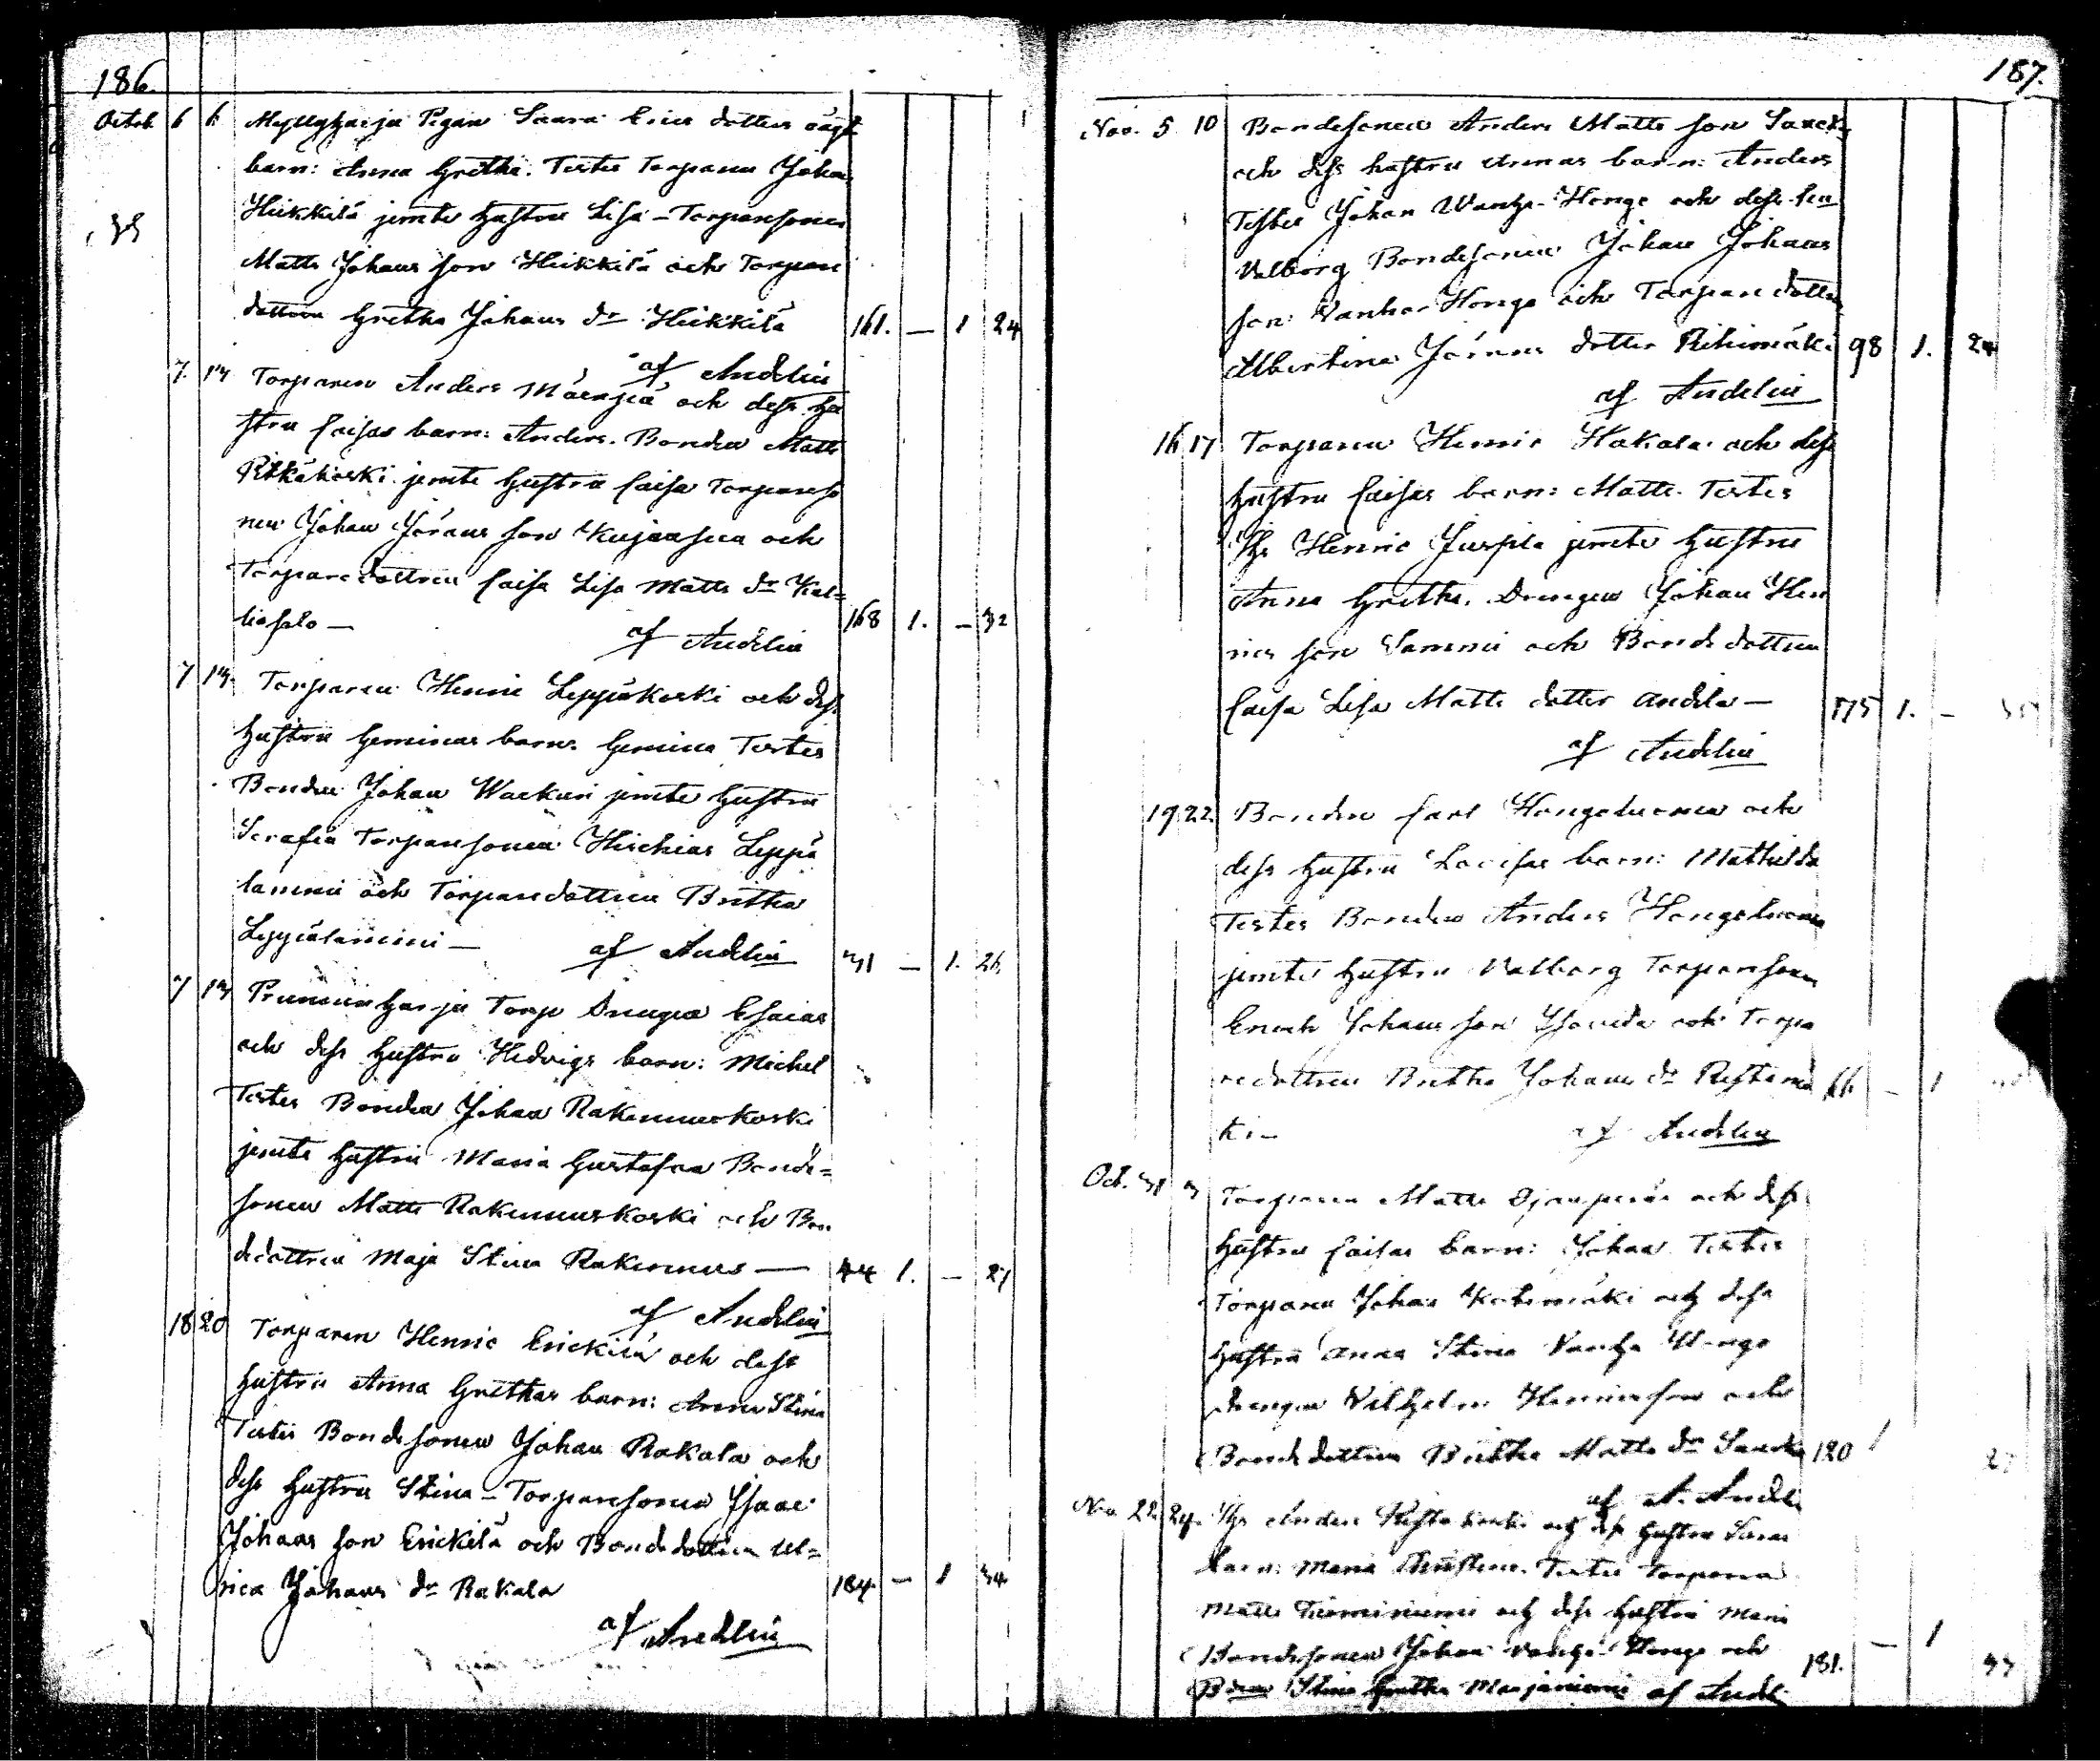 186.
Octob. 6 6 Myllyharju Pigan Saara Erics dotters oägt
barn: Anna Gretha. Testes Torparen Johan
Heikkilä jemte hustru Lisa - Torparesonen
Matts Johans son Heikkilä och Torpare
dottren Gretha Johans dr Heikkilä 161. — 1 24
af Andelin
7. 13 Torparen Anders Mäenpää och dess hu
stru Caisas barn: Anders. Bonden Matts
Pitkäkoski jemte hustru Caisa Torpareso
nen Johan Jörans son Kujanpää och
Torparedottren Caisa Lisa Matts dr Kal=
liosalo — 168 1. — 32
af Andelin
7 13 Torparen Henric Leppäkoski och dess
hustru Geminas barn: Gemina Testes
Bonden Johan Waekeri jemte hustru
Serafia Torparesonen Hischias Leppä
lammi och Torparedottren Britha
Leppälammi — af Andelin 31 — 1. 26
7 13 Prunninharju Torp Drengen Esaias
och dess hustru Hedvigs barn: Michel
Testes Bonden Johan Rakennuskoski
jemte hustru Maria Gustafva Bonde=
sonen Matts Rakennuskoski och Bon
dedottren Maja Stina Rakennus — 44 1. — 27
af Andelin
18 20 Torparen Henric Erickilä och dess
hustru Anna Grethas barn: Anna Stina
Testes Bondesonen Johan Rakala och
dess hustru Stina - Torparesonen Isaac
Johans son Erickilä och Bondedottren Ul=
rica Johans dr Rakala 184. — 1 34
af Andelin
187.
Nov. 5 10 Bondesonen Anders Matts son
och dess hustru Annas barn: Anders
Testes Johan Wanha-Hongo och dess hu
Valborg Bondesonen Johan Johans
son Vanha-Hongo och Torparedottren
Albertina Jörans dotter Rihimäki 98 1. 24
af Andelin
16 17 Torparen Henric Hakala och dess
hustru Caisas barn: Matts. Testes
Henric Juspila jemte hustru
Anna Gretha. Drengen Johan Hen
rics son Sammi och Bondedottren
Caisa Lisa Matts dotter Andela — 175 1. —
af Andelin
19 22. Bonden Carl Hongoluoma och
dess hustru Lovisas barn: Mathilda
Testes Bonden Anders Hongoluoma
jemte hustru Valborg Torparesonen
Enoch Johans son och Torpa
redottren Britha Johans dr Ristamä 66. — 1
ki — af Andelin
Oct. 31 3 Torparen Matts Ojanperä och dess
hustru Caisas barn: Johan Testes
Torparen Johan Katemäki och dess
hustru Anna Stina Vanha Hongo
Drengen Vilhelm Henricsson och
Bondedottren Britha Matts dr 120 1
af A. Andelin
Nov. 22 24. Anders Ristakoski och dess hustru Saras
barn: Maria Christina. Testes Torparen
Matts Tuominiemi och dess hustru Maria
Bondesonen Johan Vanha Hongo och
Stina Gretha Marjaniemi af Andelin 181. — 1